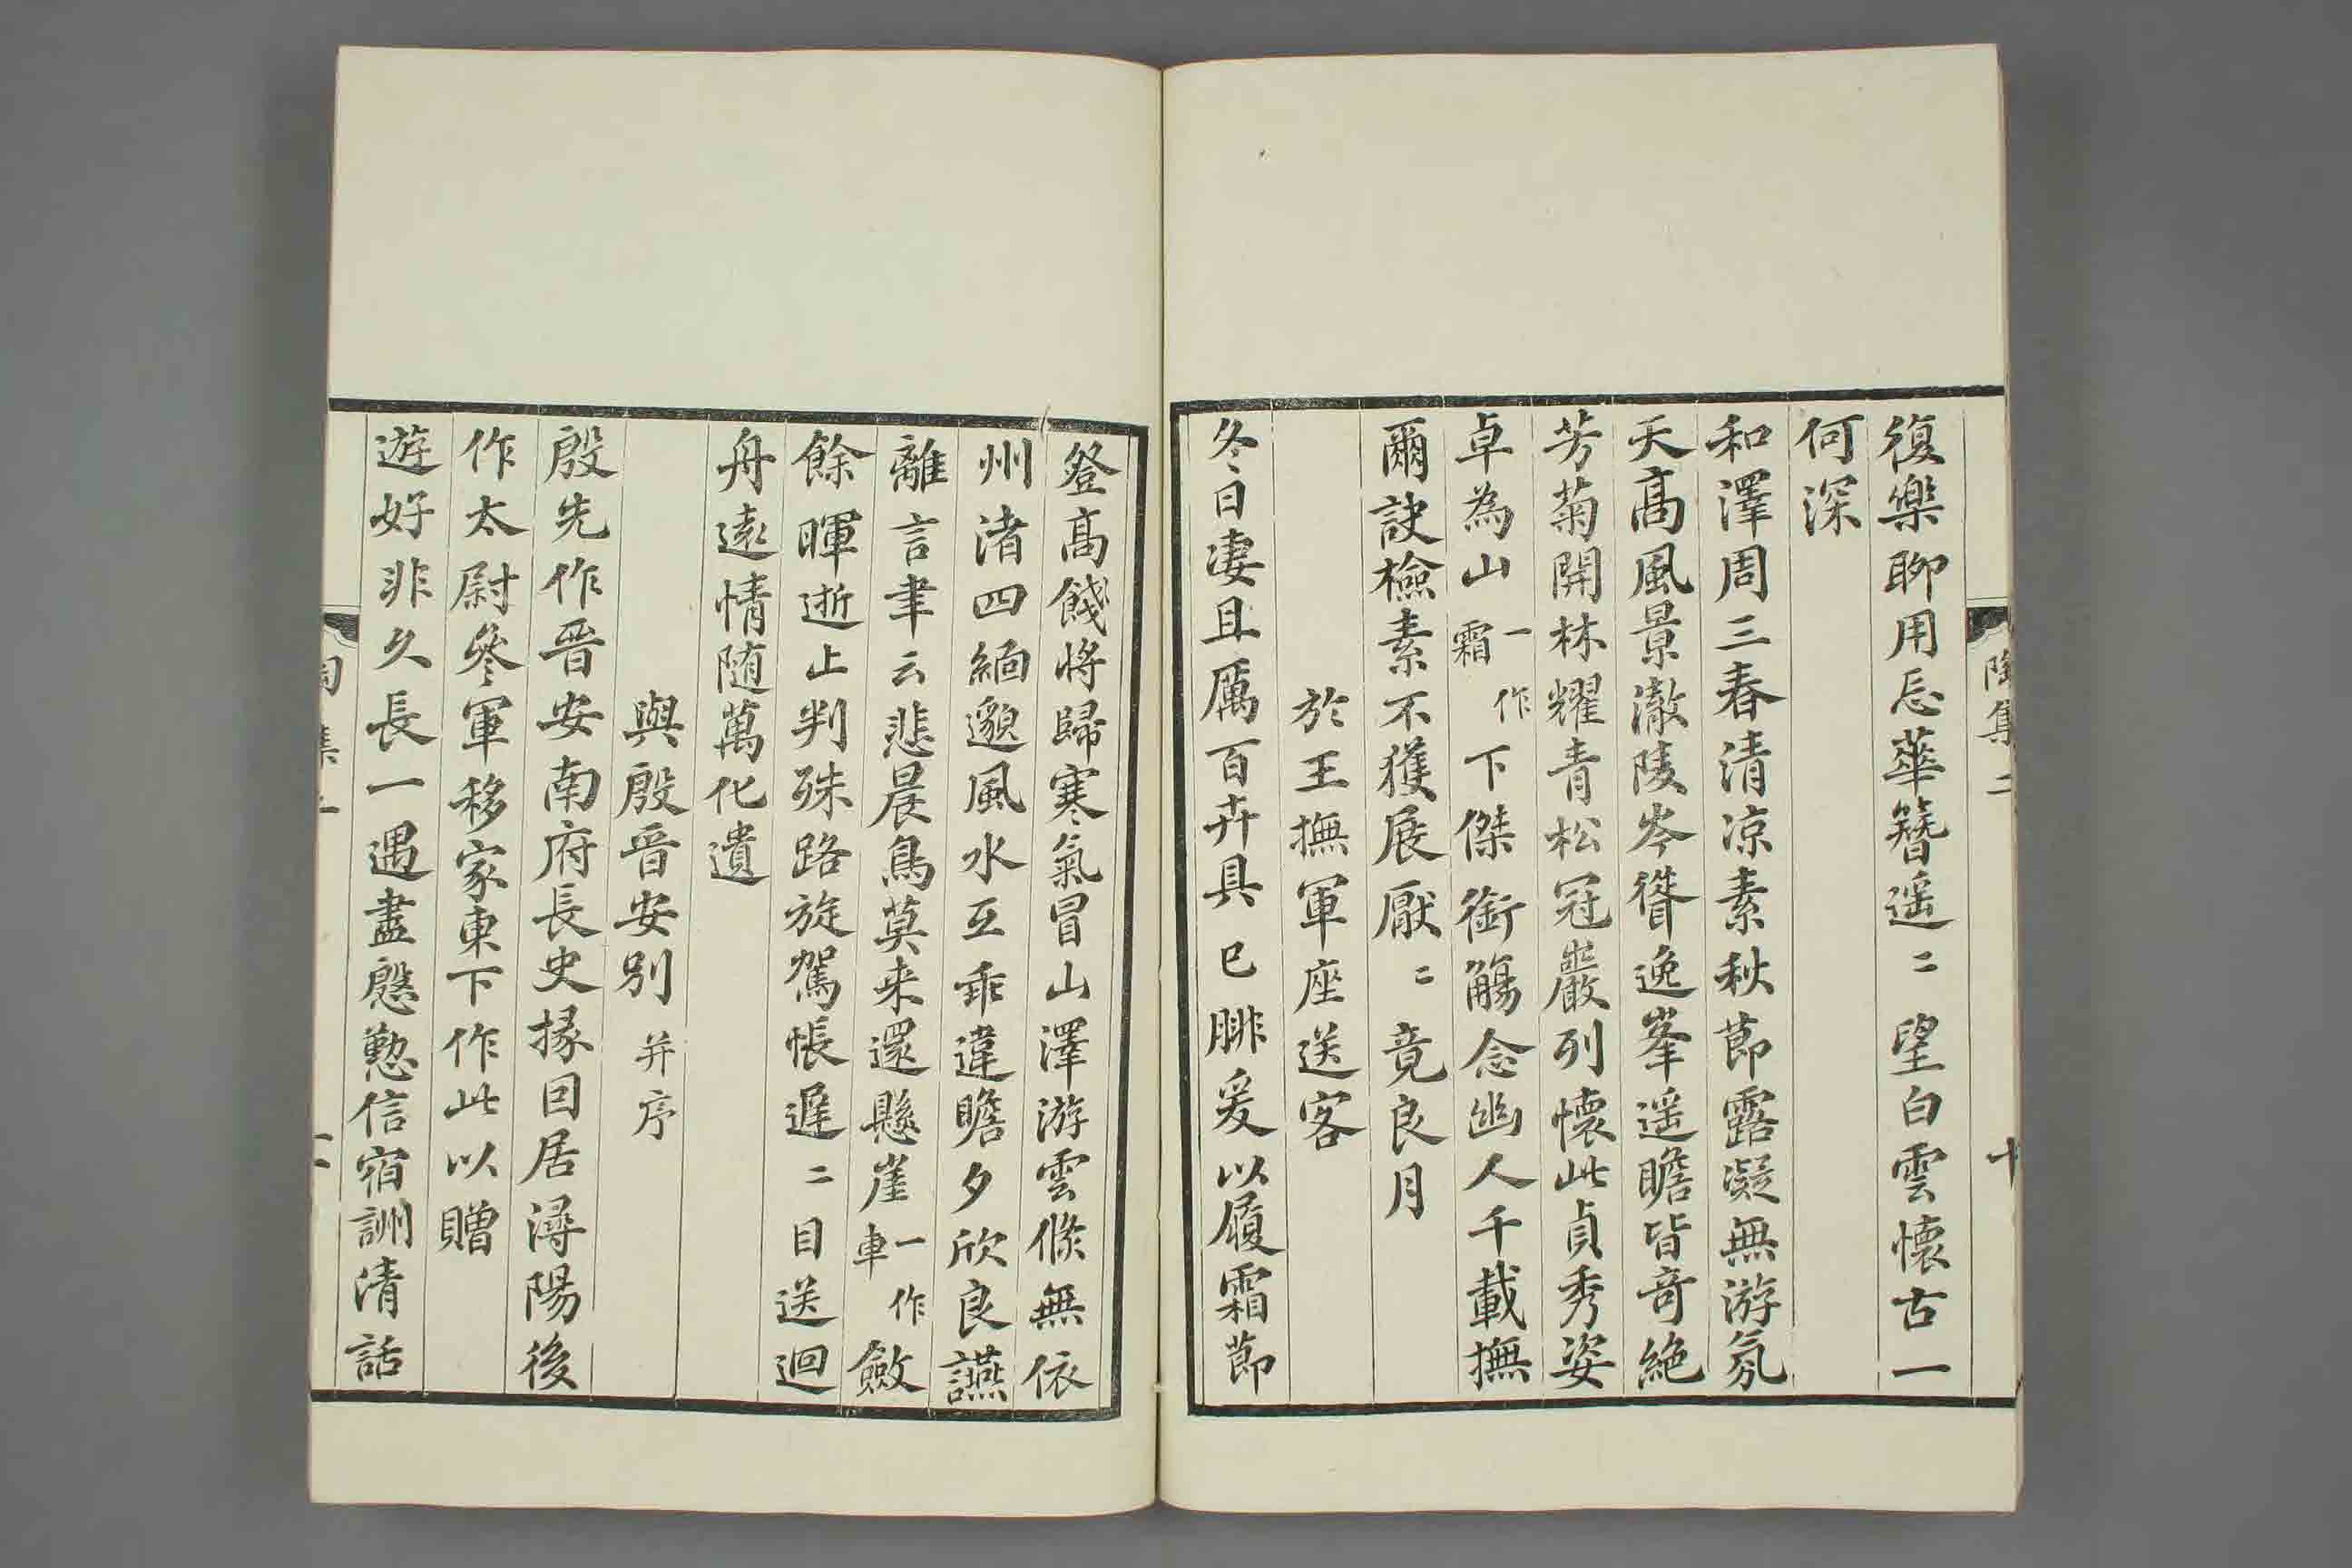 復樂聊用忘華簪遥二望白雲懷古一
何深
和澤周三春清凉素秋節露凝無游氛
天髙風景澈陵岑聳逸峯遥瞻皆奇絶
芳菊開林耀青松冠巖列懷此貞秀姿
卓為山一作霜下傑銜觴念幽人千載撫
爾訣檢素不獲展厭二竟良月
於王撫軍座送客
冬日凄且厲百卉具已腓爰以履霜節
登髙餞將歸寒氣冒山澤游雲倏無依
州渚四緬邈風水互乖違瞻夕欣良讌
離言聿云悲晨鳥莫来還懸崖一作車斂
餘暉逝止判殊路旋駕悵遲二目送迴
舟遠情随萬化遺
與殷晋安別并序
殷先作晋安南府長史掾因居潯陽後
作太尉參軍移家東下作此以贈
遊好非久長一遇盡慇懃信宿詶清話
陶集二
十